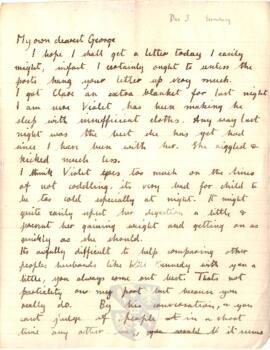 Dec 3 Sunday
My own dearest George
I hope I shall get a letter today I easily
might, infact I certainly ought to unless the
posts hung your letter up very much.
I got Clare an extra blanket for last night
I am sure Violet has been making he
sleep with insufficient clothes. Any way last
night was the best she has yet had
since I have been with her. She niggled &
kicked much less.
I think Violet goes too much on the lines
of not coddling. its very bad for child to
be too cold specially at night. It might
quite easily upset her digestion a little &
prevent her gaining weight and getting on as
quickly as she should.
Its awfully difficult to help comparing other
peoples husbands like Kennedy with you a
little, you always come out best. Thats not
partiality on my part but because you
really do. By his conversation, & you
cant judge of people at in a short
time any other way, you would it seems